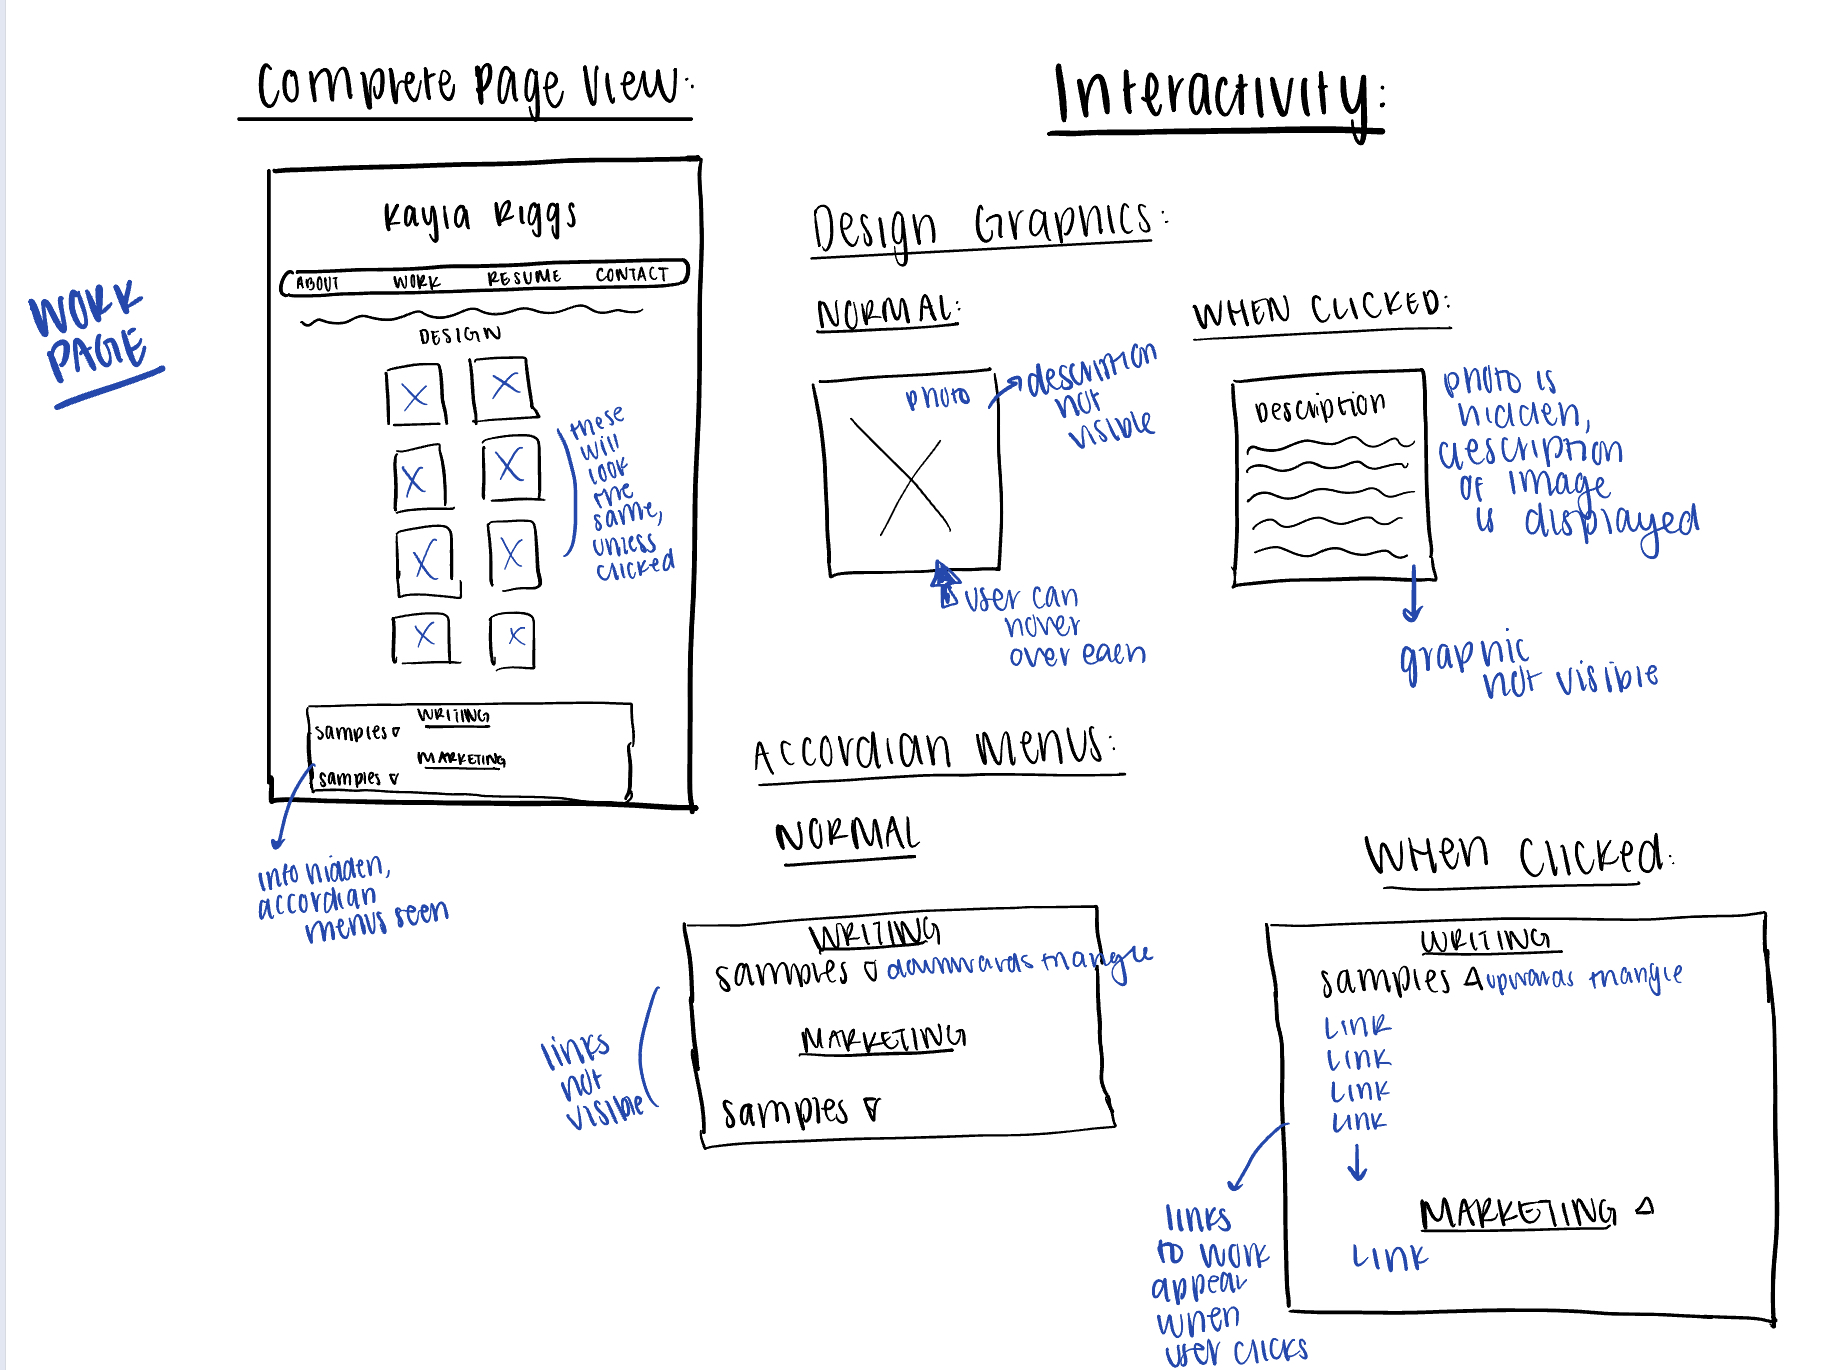 Complete Page View:
Interactivity:
WORK
PAGE
Kayla Riggs
ABOUT WORK RESUME CONTACT
DESIGN
these
will
look
the
same,
unless
clicked
WRITING
samples ▿
MARKETING
samples ▿
info hidden,
accordian
menus seen
Design Graphics:
NORMAL:
photo
description
not
visible
user can
hover
over each
WHEN CLICKED:
Description
photo is
hidden,
description
of image
is displayed
graphic
not visible
Accordian Menus:
NORMAL
WRITING
samples ▿ downwards triangle
MARKETING
samples ▿
links
not
visible
When Clicked:
WRITING
samples △ upwards triangle
LINK
LINK
LINK
LINK
MARKETING △
LINK
links
to work
appear
when
user clicks